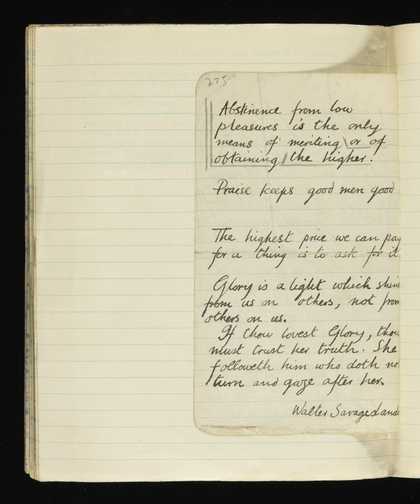 275
Abstinence from low
pleasures is the only
means of meriting \or of
obtaining/ the higher.
Praise keeps good men good
The highest price we can pay
for a thing is to ask for it
Glory is a light which shin
from us on others, not from
others on us.
If thou lovest Glory, thou
must trust her truth. She
followeth him who doth no
turn and gaze after her.
Walter Savage Land